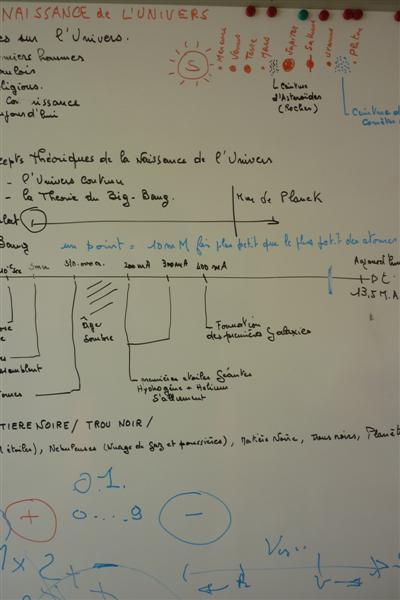 NAISSANCE de L'UNIVERS
es sur l'Univers.
religieux.
jourd'hui
S
Mercure
Venus
Terre
Mars
Jupiter
Saturne
Uranus
Pluton
Ceinture d'Asteroïdes (Roches)
Ceinture de
cepts Théoriques de la Naissance de l'Univers
- l'Univers continu
- la Theorie du Big-Bang.
Mur de Planck
Bang
un point = 10 mM fois plus petit que le plus petit des atomes
3mn
380.000 a.
200 mA
300 mA
400 mA
Aujourd'hui
13,5 M.A
Âge Sombre
Formation des premières Galaxies
premières etoiles Géantes
Hydrogène + Helium
S'allument
TIERE NOIRE / TROU NOIR /
étoiles), Nebuleuses (Nuage de Gaz et poussières), Matière Noire, Trous noirs, Planèt
0 1.
+
0....9
-
x 2 +